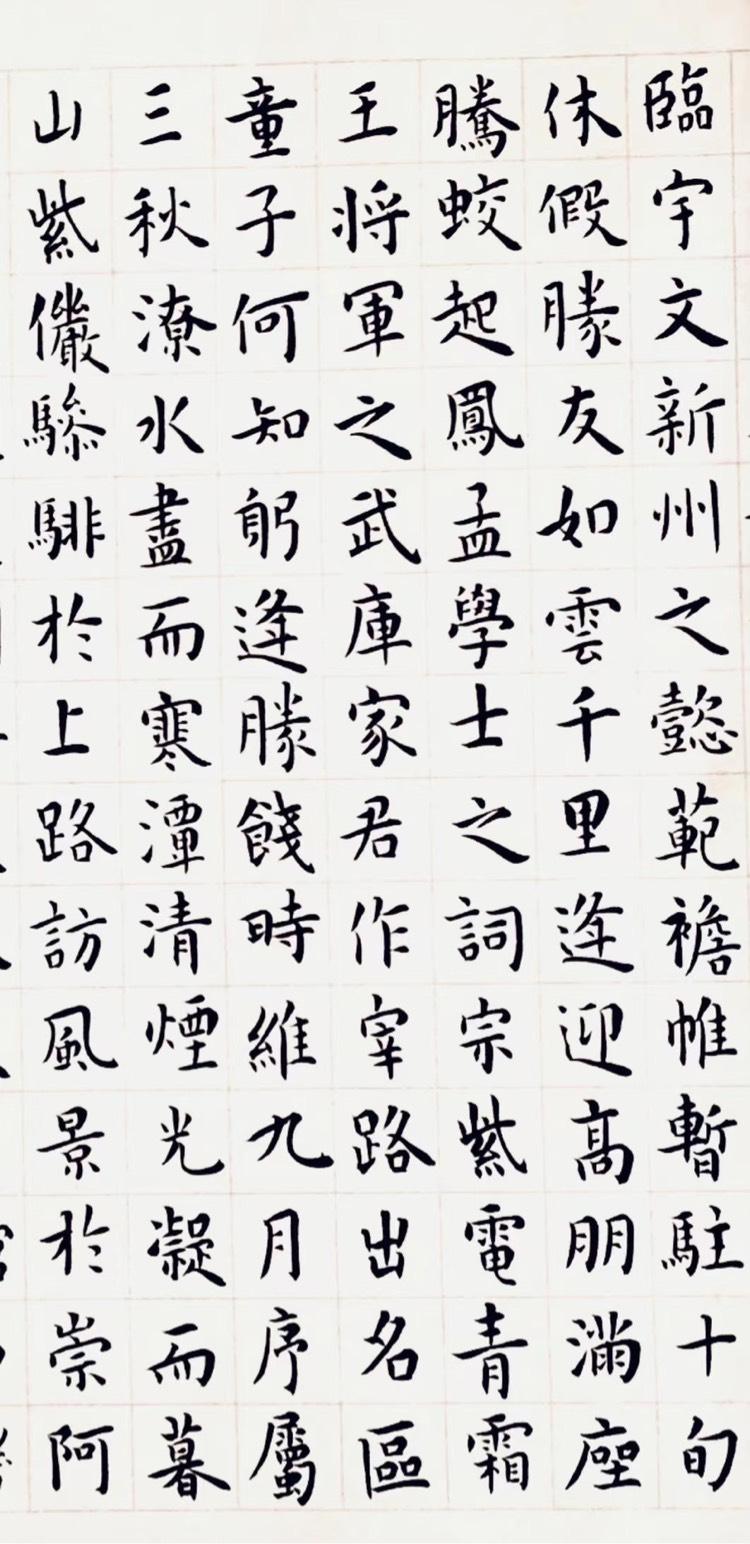 臨宇文新州之懿範襜帷暫駐十旬
休假勝友如雲千里逢迎髙朋滿座
騰蛟起鳳孟學士之詞宗紫電青霜
王将軍之武庫家君作宰路出名區
童子何知躬逢勝餞時維九月序屬
三秋潦水盡而寒潭清煙光凝而暮
山紫儼驂騑於上路訪風景於崇阿